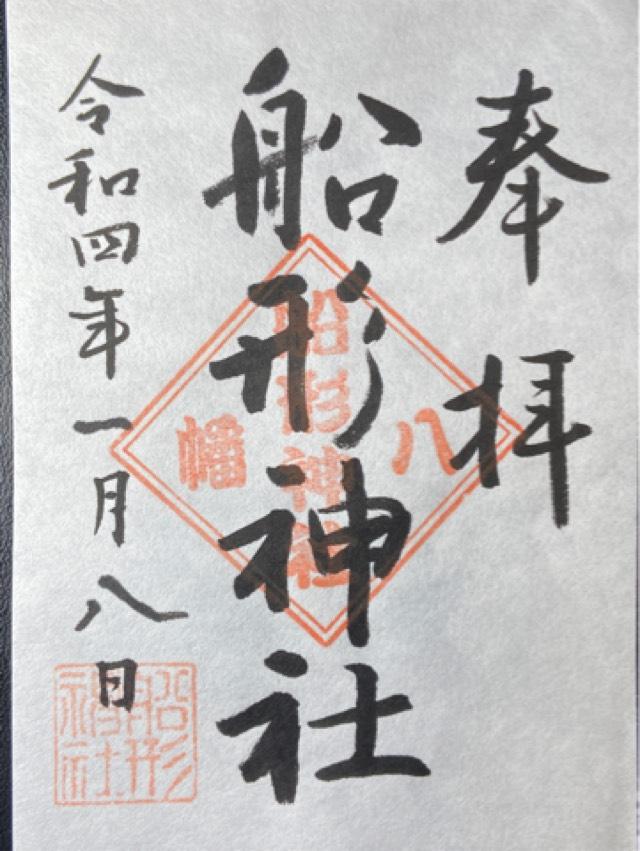 奉拝
船形神社
八幡
船形神社
令和四年一月八日
船形
神社